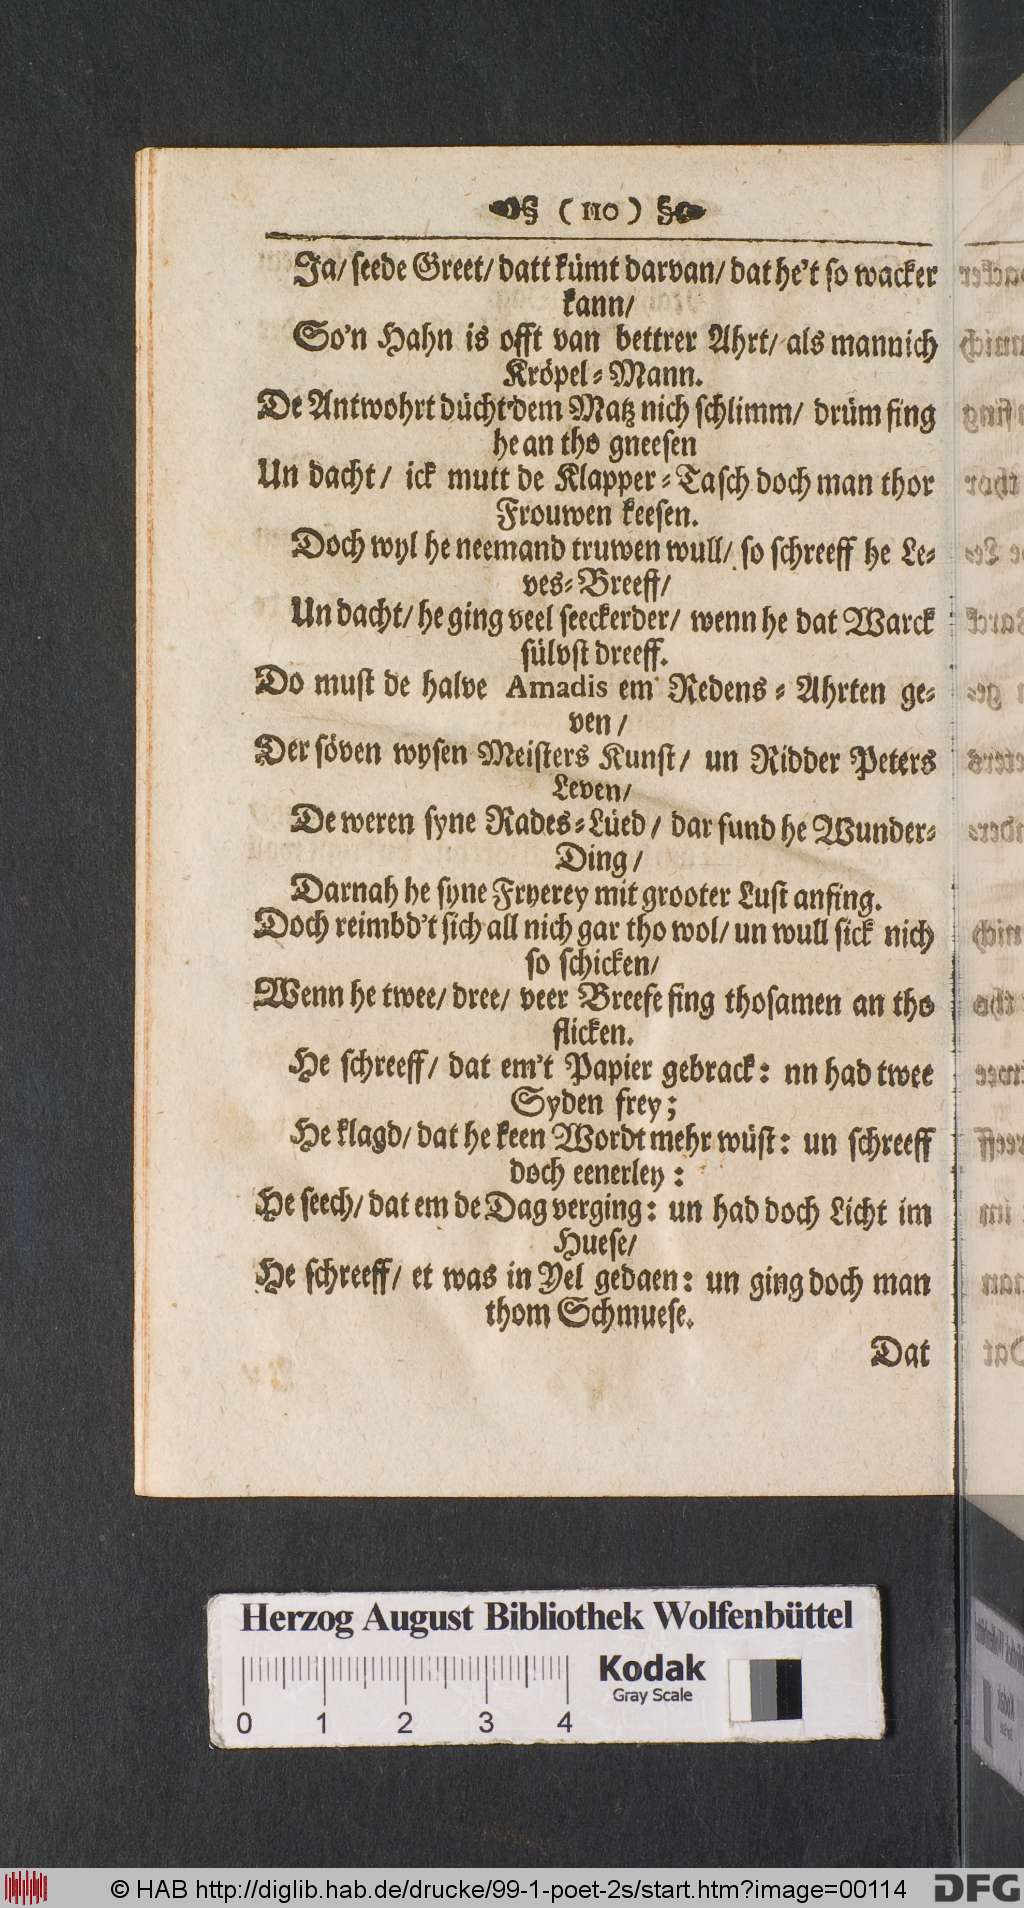 § ( 110 ) §
Ja/ seede Greet/ datt kümt darvan/ dat he't so wacker
kann/
So'n Hahn is offt van bettrer Ahrt/ als mannich
Kröpel-Mann.
De Antwohrt dücht dem Matz nich schlimm/ drüm fing
he an tho gneesen
Un dacht/ ick mutt de Klapper-Tasch doch man thor
Frouwen keesen.
Doch wyl he neemand truwen wull/ so schreeff he Le-
ves-Breeff/
Un dacht/ he ging veel seeckerder/ wenn he dat Warck
sülvst dreeff.
Do must de halve Amadis em Redens-Ahrten ge-
ven/
Der söven wysen Meisters Kunst/ un Ridder Peters
Leven/
De weren syne Rades-Lüed/ dar fund he Wunder-
Ding/
Darnah he syne Fryerey mit grooter Lust anfing.
Doch reimbd't sich all nich gar tho wol/ un wull sick nich
so schicken/
Wenn he twee/ dree/ veer Breefe fing thosamen an tho
flicken.
He schreeff/ dat em't Papier gebrack: nn had twee
Syden frey;
He klagd/ dat he keen Wordt mehr wüst: un schreeff
doch eenerley:
He seech/ dat em de Dag verging: un had doch Licht im
Huese/
He schreeff/ et was in Yel gedaen: un ging doch man
thom Schmuese.
Dat
Herzog August Bibliothek Wolfenbüttel
Kodak
Gray Scale
0 1 2 3 4
© HAB http://diglib.hab.de/drucke/99-1-poet-2s/start.htm?image=00114
DFG